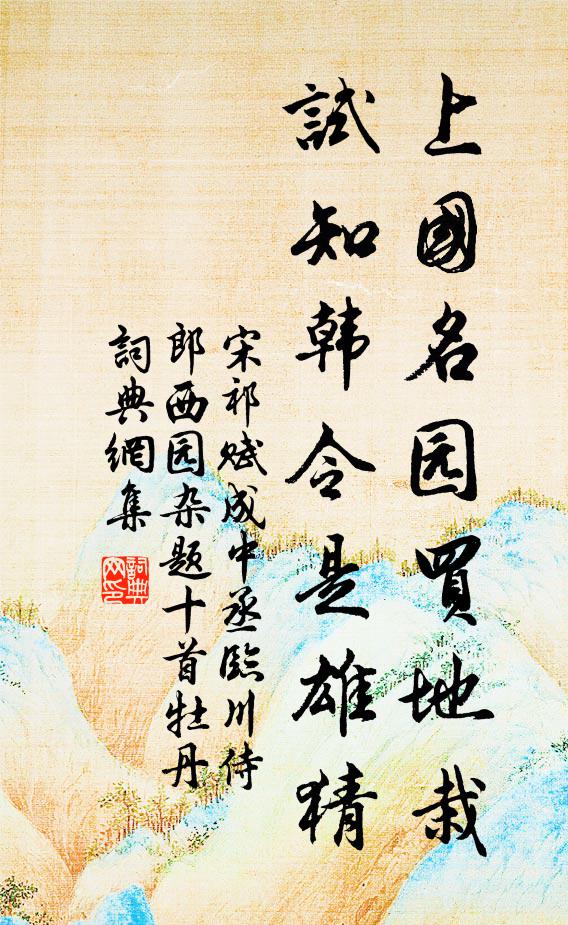 上國名园買地栽
試知韩令是雄猜
宋祁赋成中丞臨川侍
郎西园杂题十首牡丹
詞典網集
詞典
网印